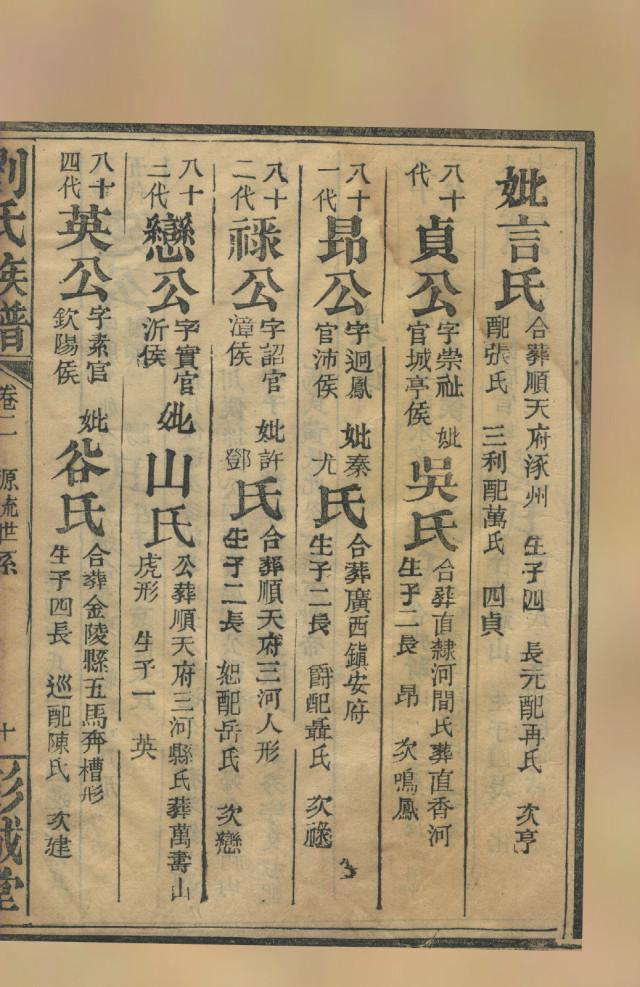 妣言氏 合葬順天府涿州 生子四 長元配再氏 次亨
配張氏 三利配萬氏 四貞
八十代 貞公 字崇祉 官城亭侯 妣吳氏 合葬直隸河間氏葬直香河
生子二長 昂 次鳴鳳
八十一代 昂公 字迥鳳 官沛侯 妣秦尤氏 合葬廣西鎮安府
生子二長 爵配聶氏 次祿
八十二代 祿公 字詔官 漳侯 妣許鄧氏 合葬順天府三河人形
生子二長 恕配岳氏 次戀
八十三代 戀公 字實官 沂侯 妣山氏 公葬順天府三河縣氏葬萬壽山
虎形 生子一 英
八十四代 英公 字素官 欽陽侯 妣谷氏 合葬金陵縣五馬奔槽形
生子四長 巡配陳氏 次建
劉氏族譜 卷二 源流世系 十 彭城堂